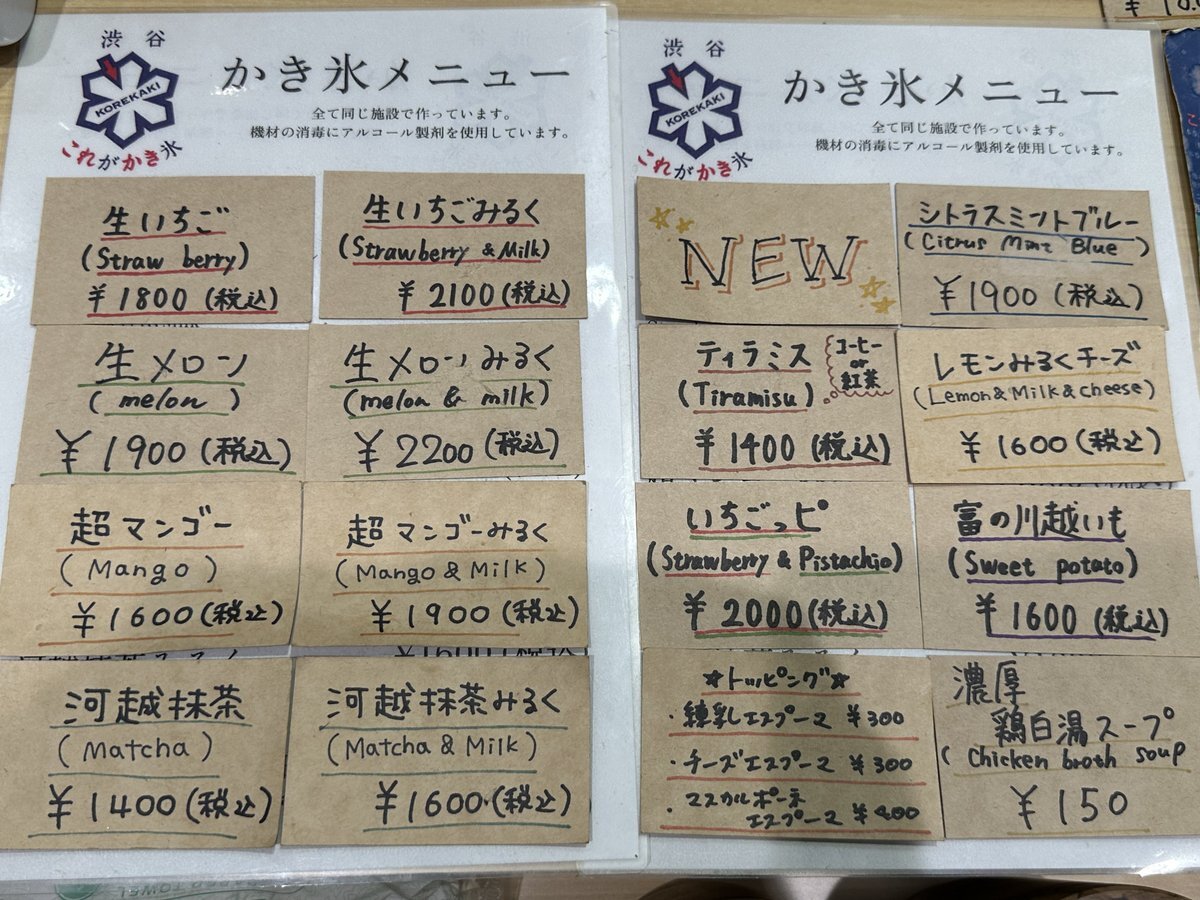 渋谷
KOREKAKI
これがかき氷
かき氷メニュー
全て同じ施設で作っています。
機材の消毒にアルコール製剤を使用しています。
生いちご
(Straw berry)
¥1800(税込)
生いちごみるく
(Strawberry & Milk)
¥2100(税込)
生メロン
(melon)
¥1900(税込)
生メロンみるく
(melon & milk)
¥2200(税込)
超マンゴー
(Mango)
¥1600(税込)
超マンゴーみるく
(Mango & Milk)
¥1900(税込)
河越抹茶
(Matcha)
¥1400(税込)
河越抹茶みるく
(Matcha & Milk)
¥1600(税込)
渋谷
KOREKAKI
これがかき氷
かき氷メニュー
全て同じ施設で作っています。
機材の消毒にアルコール製剤を使用しています。
NEW
シトラスミントブルー
(Citrus Mint Blue)
¥1900(税込)
ティラミス
(Tiramisu)
コーヒー
or
紅茶
¥1400(税込)
レモンみるくチーズ
(Lemon&Milk&cheese)
¥1600(税込)
いちごっピ
(Strawberry & Pistachio)
¥2000(税込)
富の川越いも
(Sweet potato)
¥1600(税込)
☆トッピング☆
・練乳エスプーマ ¥300
・チーズエスプーマ ¥300
・マスカルポーネ
エスプーマ
濃厚
鶏白湯スープ
(Chicken broth soup
¥150